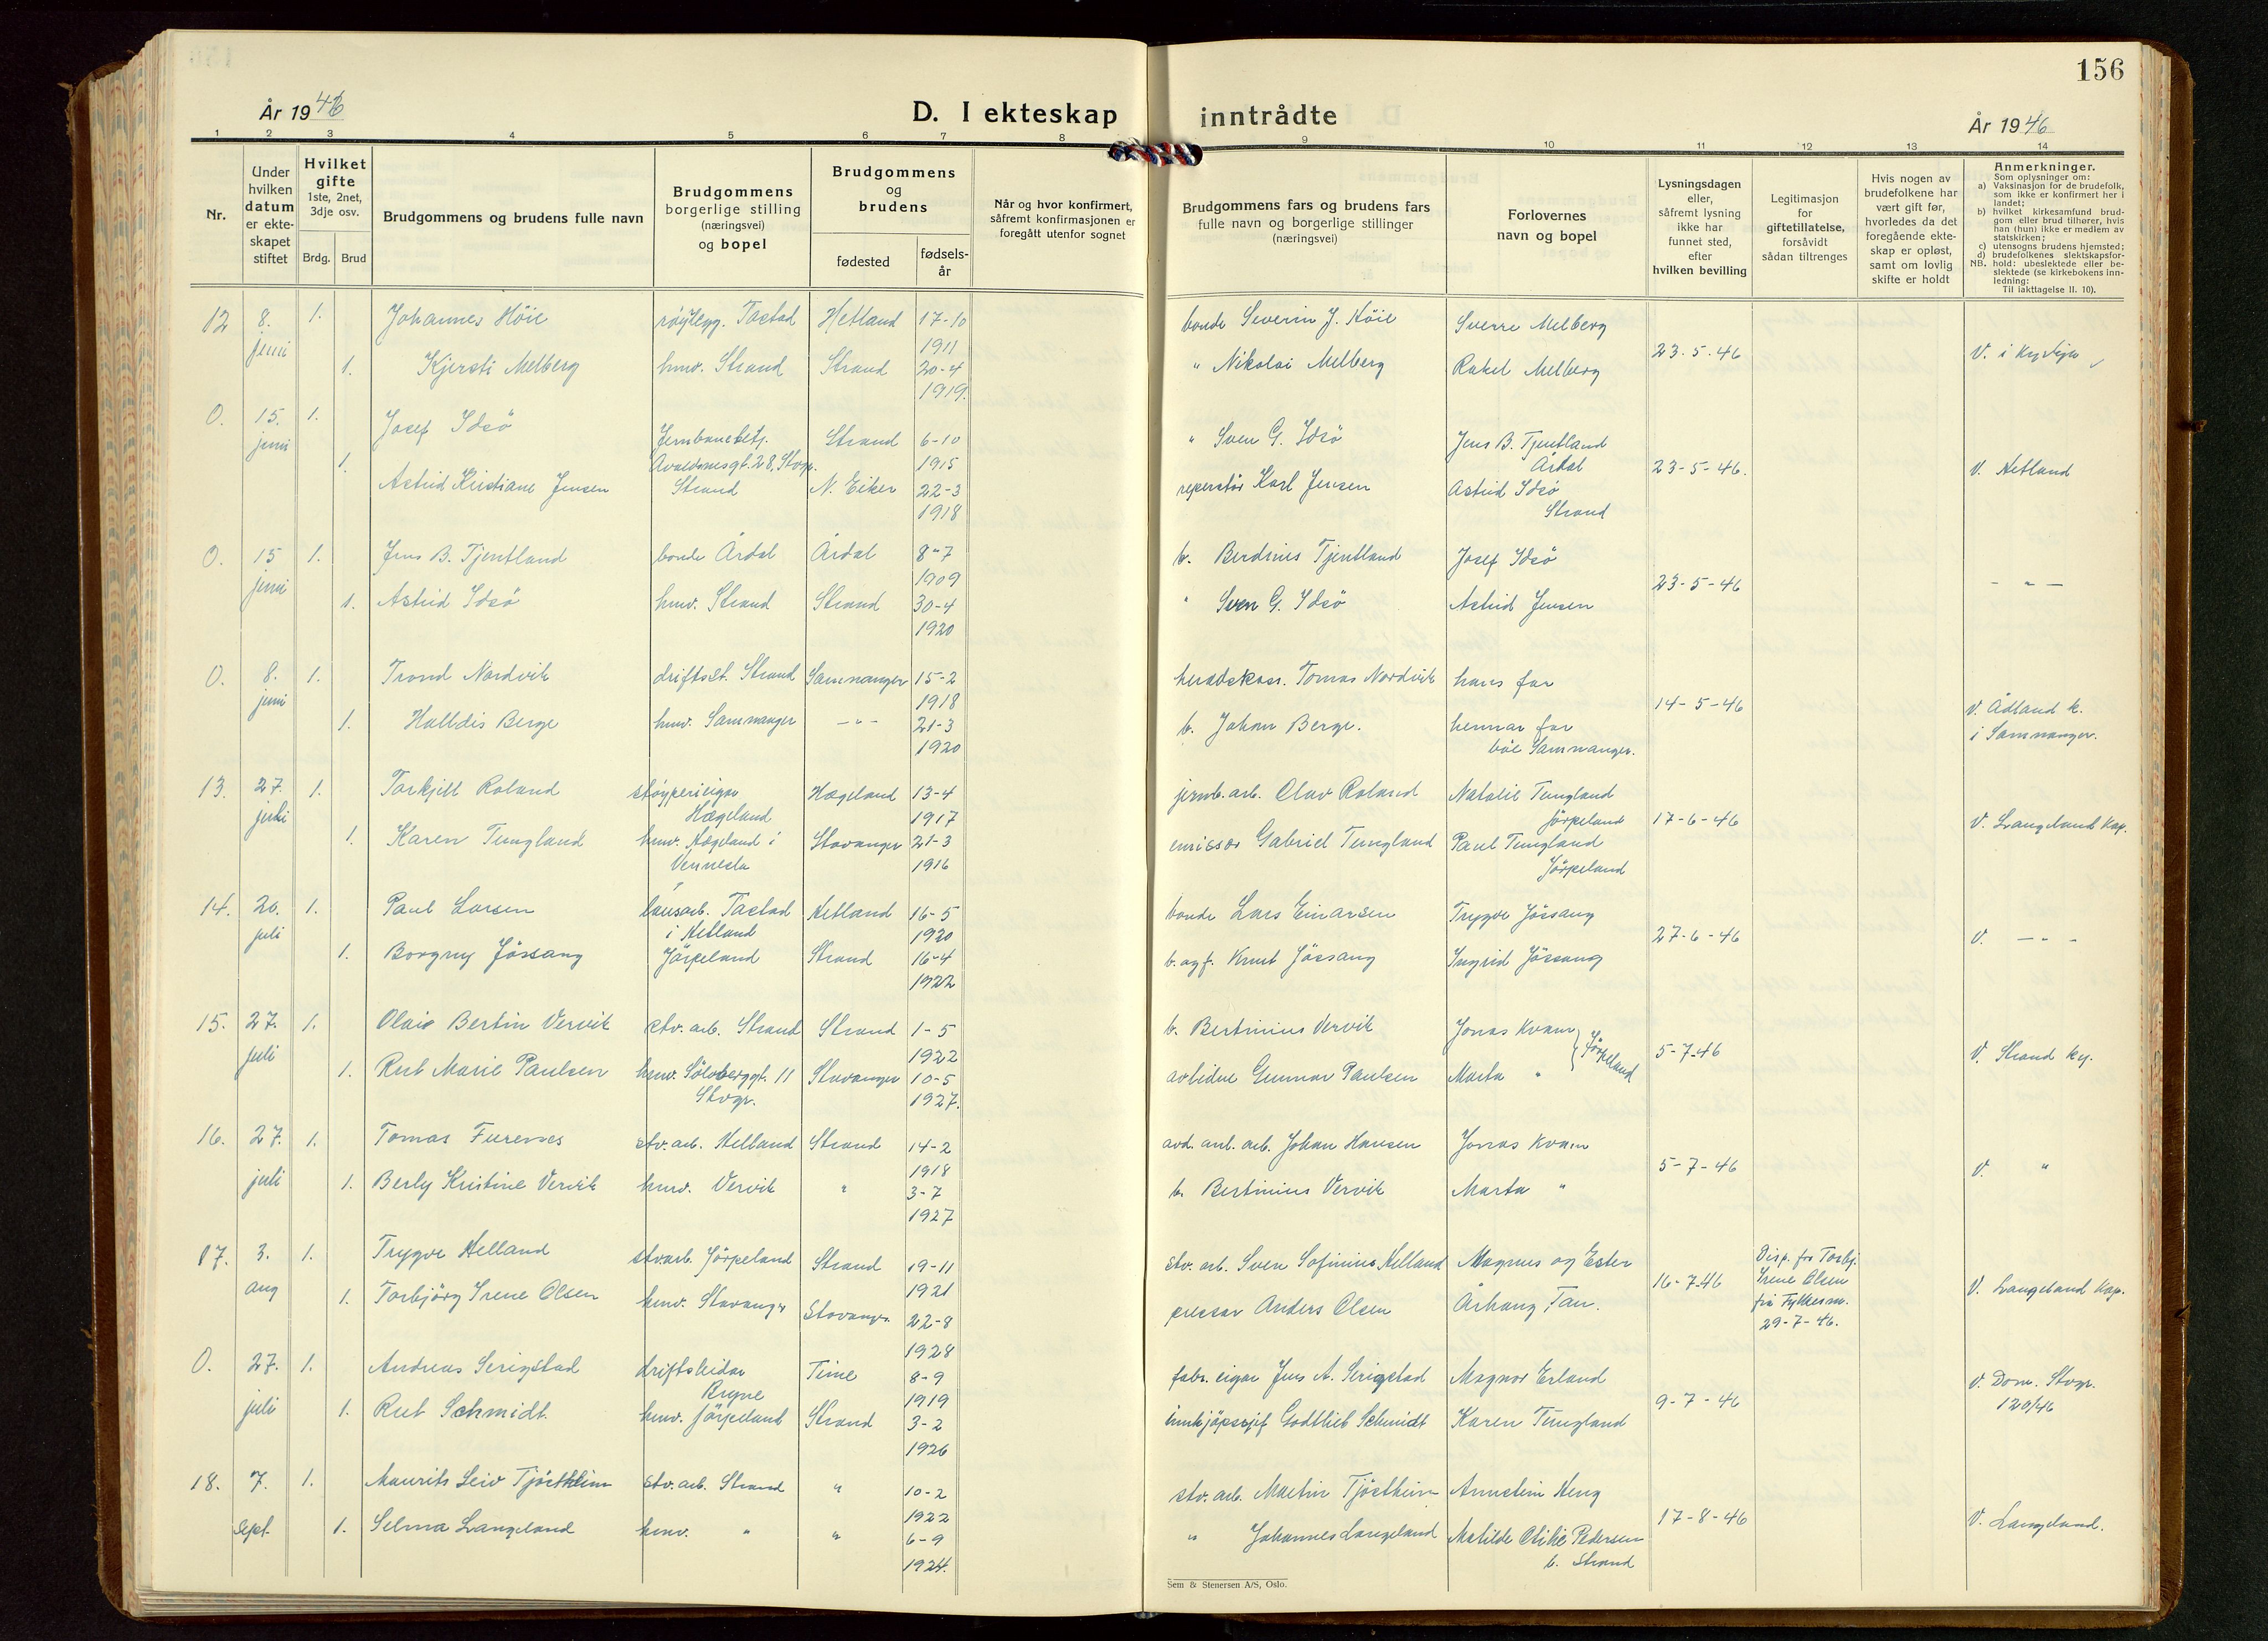 156
År 1946
D. I ekteskap inntrådte
År 1946
1 2 3 4 5 6 7 8 9 10 11 12 13 14
Nr.
Under hvilken datum er ekte-skapet stiftet
Hvilket gifte
1ste, 2net, 3dje osv.
Brdg. Brud
Brudgommens og brudens fulle navn
Brudgommens borgerlige stilling (næringsvei) og bopel
Brudgommens og brudens
fødested
fødsels-år
Når og hvor konfirmert, såfremt konfirmasjonen er foregått utenfor sognet
Brudgommens fars og brudens fars fulle navn og borgerlige stillinger (næringsvei)
Forlovernes navn og bopel
Lysningsdagen eller, såfremt lysning ikke har funnet sted, efter hvilken bevilling
Legitimasjon for giftetillatelse, forsåvidt sådan tiltrenges
Hvis nogen av brudefolkene har vært gift før, hvorledes da det foregående ekte-skap er opløst, samt om lovlig skifte er holdt
Anmerkninger.
Som oplysninger om:
a) Vaksinasjon for de brudefolk, som ikke er konfirmert her i landet;
b) hvilket kirkesamfund brud-gom eller brud tilhører, hvis han (hun) ikke er medlem av statskirken;
c) utensogns brudens hjemsted;
d) brudefolkenes slektskapsfor-hold: ubeslektede eller be-slektede (se kirkebokens inn-ledning:
NB. Til iakttagelse II. 10).
12 8. juni 1. Johannes Höie Tastad Hetland 17-10 1911 bonde Severin J. Höie Sverre Melberg
1. Kjersti Melberg hmv. Strand Strand 20-4 1919. " Nikolai Melberg Rakel Melberg 23-5-46 V. i
0. 15. juni 1. Josef Idsö Jernbanebetj. Avaldsnesgt. 28, Stvgr. Strand 6-10 1915 " Sven G. Idsö Jens B. Tjentland Årdal
1. Astrid Kristiane Jensen Strand N. Eiker 22-3 1918 reperatör Karl Jensen Astrid Idsö Strand 23-5-46. V. Hetland
0. 15 juni 1. Jens B. Tjentland bonde Årdal Årdal 8-7 1909 b. Berdines Tjentland Josef Idsö
1. Astrid Idsö hmv. Strand Strand 30-4 1920 " Sven G. Idsö Astrid Jensen 23-5-46 - " -
0. 8. juni 1. Trond Nordvik driftsst. Strand Samnanger 15-2 1918 heradskass. Tomas Nordvik hans far
1. Halldis Berge hmv. Samnanger -"- 21-3 1920 b. Johan Berge. hennar far båe Samnanger. 14-5-46 V. Ådland k. i Samnanger.
13. 27. juli 1. Torkjell Roland støyperieigar Hægeland Hægeland 13-4 1917 jernb. arb. Olav Roland Natalie Tungland Jörpeland
1. Karen Tungland hmv. Hægeland i Vennesla Stavanger 21-3 1916 Gabriel Tungland Paul Tungland Jörpeland 17-6-46 V. Langeland Kap.
14. 20. juli 1. Paul Larsen Tastad i Hetland Hetland 16-5 1920 bonde Lars Einarsen Trygve Jössang
1. Borgny Jössang Jörpeland Strand 16-4 1922 b. og f. Knut Jössang Ingrid Jössang 27-6-46 V. - " -
15. 27. juli 1. Olai Bertin Vervik stv. arb. Strand Strand 1-5 1922 b. Bertinius Vervik Jonas Kvam
1. Rut Marie Paulsen hmv. Sölvberggt. 11 Stvgr. Stavanger 10-5 1927. arbeidar Gunnar Paulsen Marta " Jörpeland 5-7-46 V. Strand ky.
16. 27. juli 1. Tomas Furenes stv. arb. Helland Strand 14-2 1918 arb. Johan Hansen Jonas Kvam
1. Berly Kristine Vervik hmv. Vervik " 3-7 1927 b. Bertinius Vervik Marta " 5-7-46 V. "
17. 3. aug 1. Trygve Helland stv.arb. Jörpeland Strand 19-11 1921 stv. arb. Sven Sofinius Helland Magnus og Ester
1. Torbjörg Irene Olsen hmv. Stavanger Stavanger. 22-8 1928 pressar Anders Olsen Århaug, Tau. 16-7-46 Disp. for Torbj. Irene Olsen frå Fylkesm. 29-7-46. V. Langeland Kap.
0. 27. juli 1. Andreas Serigstad driftsleidar Bryne Time 8-9 1919 fabr. eigar Jens A. Serigstad Magnar Erland
1. Rut Schmidt. hmv. Jörpeland Strand 3-2 1926 innkjöpssjef Godtlieb Schmidt Karen Tungland 9-7-46 V. Dom. Stvgr. 120/46
18. 7. sept. 1. Maurits Leiv Tjöstheim stv. arb. Strand " 10-2 1922 stv. arb. Martin Tjöstheim Annstein Heng
1. Selma Langeland hmv. " " 6-9 1924. " Johannes Langeland Matilde Otilie Pedersen b. Strand 17-8-46 V. Langeland.
Sem & Stenersen A/S, Oslo.